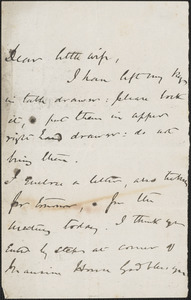 Dear little wife,
I have left my keys
in table drawer: please lock
it, put them in upper
right hand drawer: do not
bring them.
I enclose a letter, and
for tomorrow, for the
meeting today. I think you
by steps at corner of
Mansion House God bless you